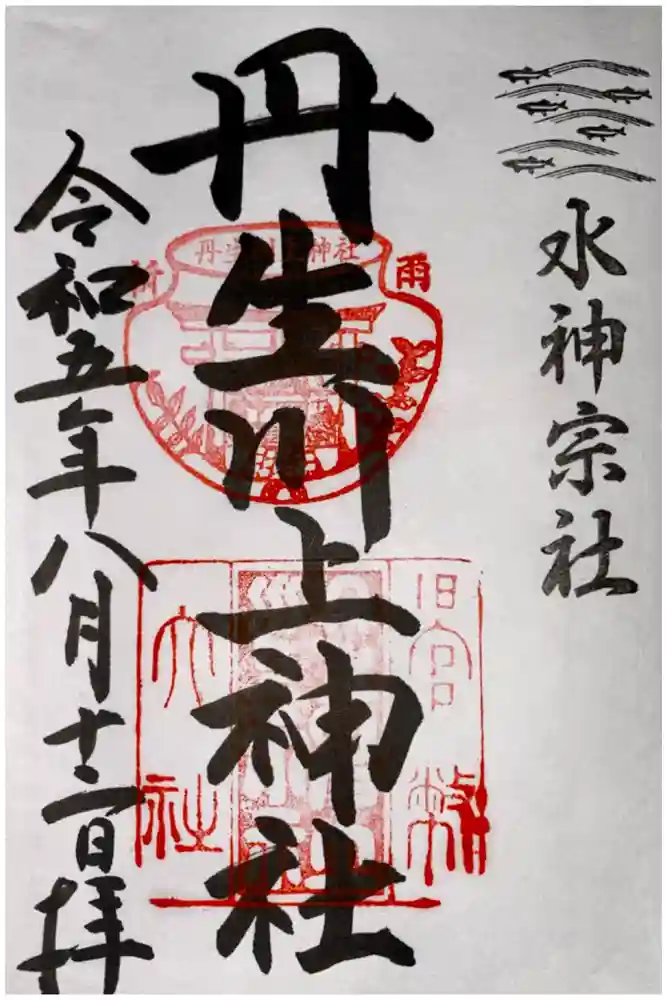 水神宗社
丹生川上神社
丹生川上神社
祈
雨
旧官幣
大社
令和五年八月廿二日拝